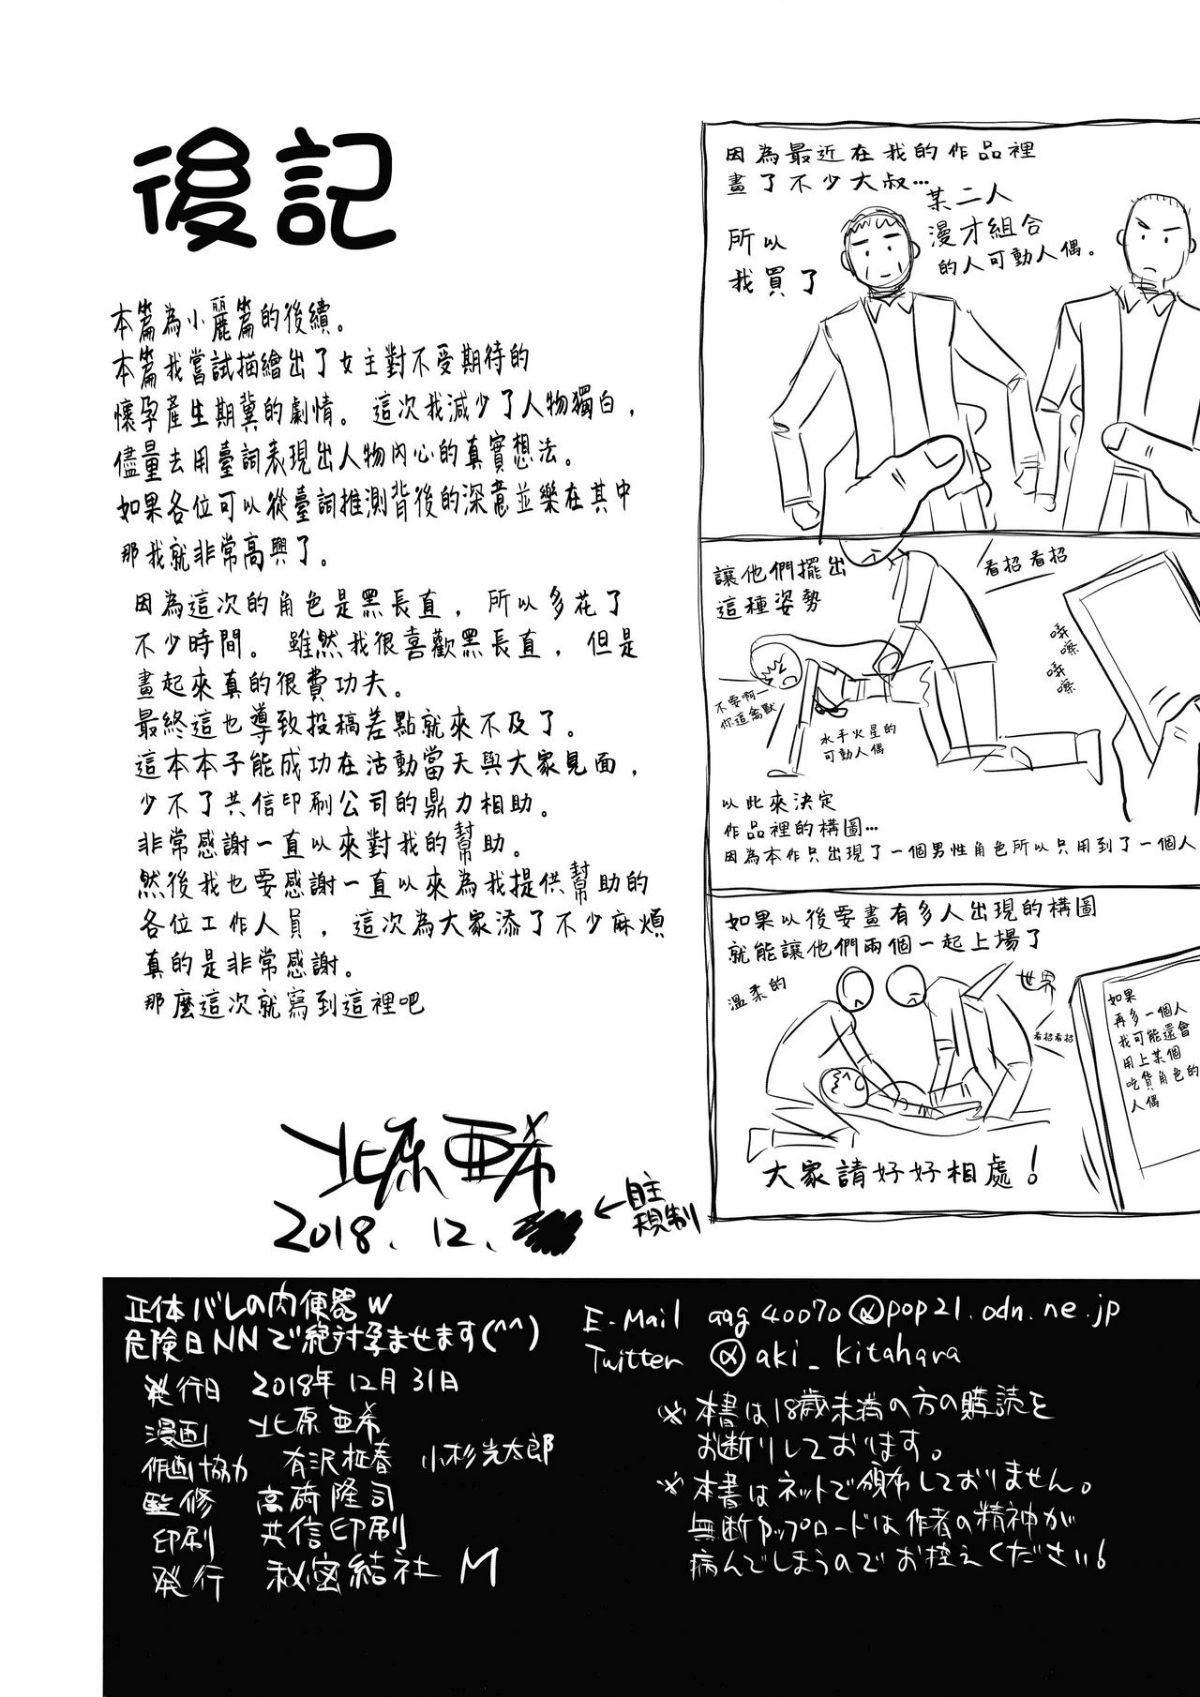 後記
本篇為小麗篇的後續。
本篇我嘗試描繪出了女主對不受期待的
懷孕產生期冀的劇情。這次我減少了人物獨白，
儘量去用臺詞表現出人物內心的真實想法。
如果各位可以從臺詞推測背後的深意並樂在其中
那我就非常高興了。
因為這次的角色是黑長直，所以多花了
不少時間。雖然我很喜歡黑長直，但是
畫起來真的很費功夫。
最終這也導致投稿差點就來不及了。
這本本子能成功在活動當天與大家見面，
少不了共信印刷公司的鼎力相助。
非常感謝一直以來對我的幫助。
然後我也要感謝一直以來為我提供幫助的
各位工作人員，這次為大家添了不少麻煩
真的是非常感謝。
那麼這次就寫到這裡吧
北原亜希
2018.12.
←自主
規制
因為最近在我的作品裡
畫了不少大叔…
所以
我買了
某二人
漫才組合
的人可動人偶。
讓他們擺出
這種姿勢
看招看招
不要啊一
你這禽獸
水手火星的
可動人偶
嚓
嚓
以此來決定
作品裡的構圖…
因為本作只出現了一個男性角色所以只用到了一個人
如果以後要畫有多人出現的構圖
就能讓他們兩個一起上場了
溫柔的
世界
看招看招
如果
再多一個人
我可能還會
用上某個
吃貨角色的
人偶
大家請好好相處！
正体バレの肉便器w
危険日NNで絶対孕ませます(^^)
発行日 2018年12月31日
漫画 北原亜希
作画協力 有沢柾春 小杉光太郎
監修 高碕隆司
印刷 共信印刷
発行 秘密結社M
E-Mail aag40070@pop21.odn.ne.jp
Twitter @aki_kitahara
※本書は18歳未満の方の購読を
お断りしております。
※本書はネットで頒布しておりません。
無断アップロードは作者の精神が
病んでしまうのでお控えください！